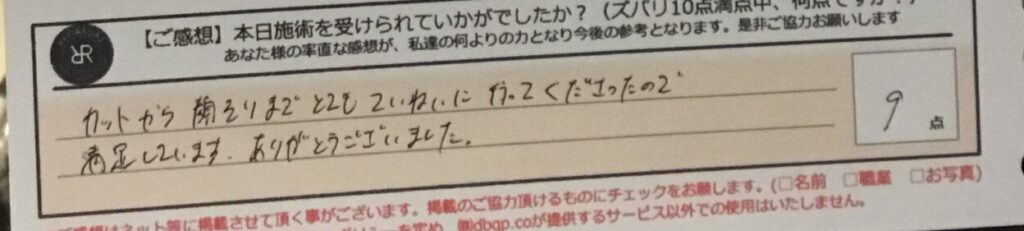 【ご感想】本日施術を受けられていかがでしたか？（ズバリ10点満点中、何点ですか？）
あなた様の率直な感想が、私達の何よりの力となり今後の参考となります。是非ご協力お願いします
カットから顔そりまでとてもていねいに行ってくださったので
満足しています。ありがとうございました。
9点
ネット等に掲載させて頂く事がございます。掲載のご協力頂けるものにチェックをお願します。(□名前 □職業 □お写真)
を定め、㈱dbqp.coが提供するサービス以外での使用はいたしません。